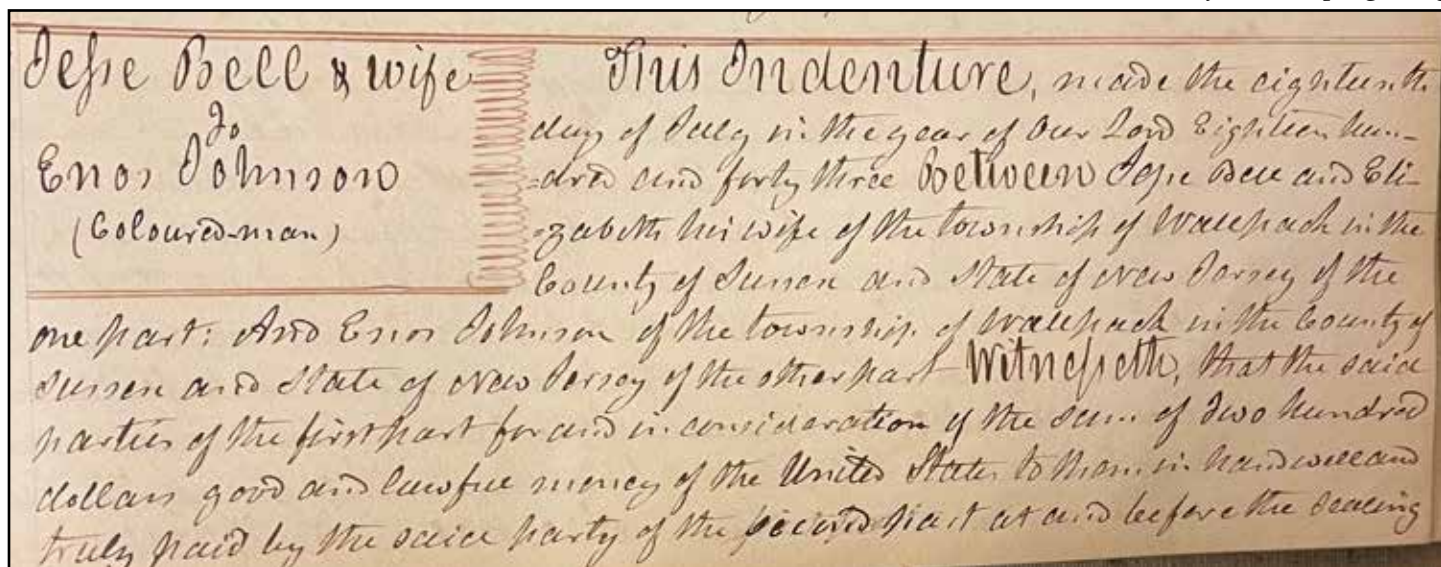 Jesse Bell & wife
To
Enos Johnson
(Coloured-man)
This Indenture, made the eighteenth
day of July in the year of Our Lord Eighteen hun-
=dred and forty three Between Jesse Bell and Eli-
=zabeth his wife of the township of Wallpack in the
County of Sussex and State of New Jersey of the
one part: And Enos Johnson of the township of Wallpack in the County of
Sussex and State of New Jersey of the other part Witnesseth, that the said
parties of the first part for and in consideration of the sum of Two hundred
dollars good and lawful money of the United States to them in hand well and
truly paid by the said party of the second part at and before the sealing